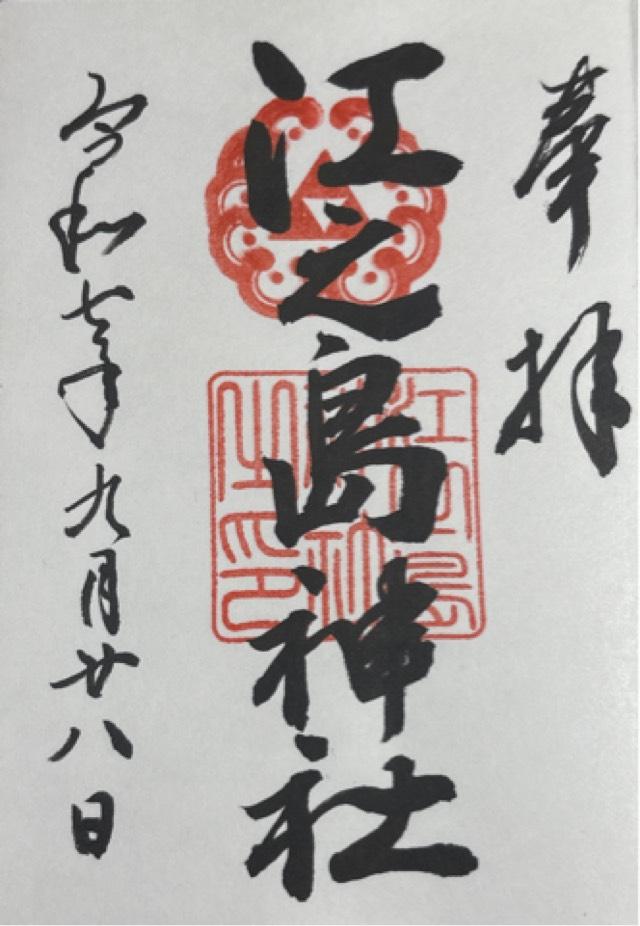 奉拝
江之島神社
江之島神社之印
令和七年九月廿八日